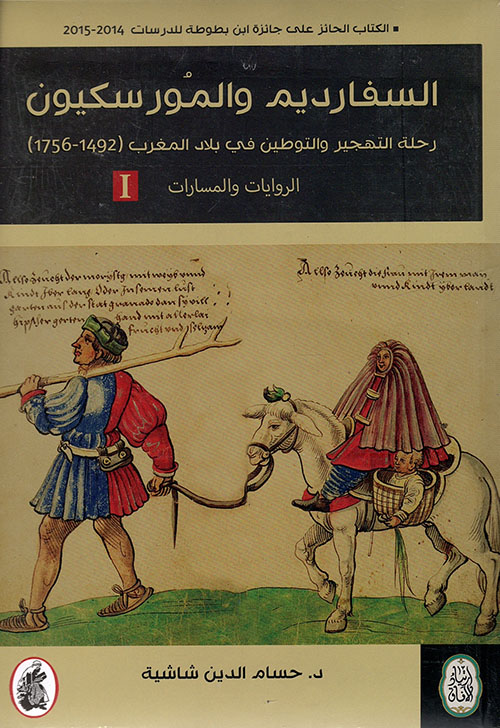 ▪ الكتاب الحائز على جائزة ابن بطوطة للدرسات 2014-2015
السفارديم والمُورسكيون
رحلة التهجير والتوطين في بلاد المغرب (1492-1756)
الروايات والمسارات I
Also zeucht der morysch mit weyb vnnd
kindt
Also zeucht die frau mit Irem man
vnnd kindt yber landt
د. حسام الدين شاشية
ارتياد
الآفاق